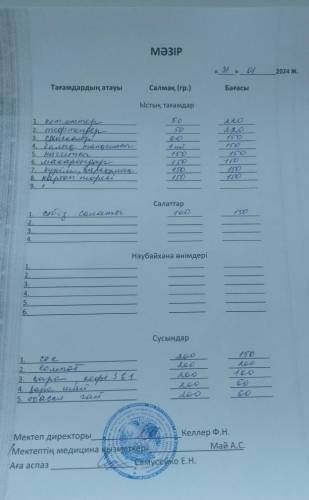 МӘЗІР
« 31 » 01 2024 ж.
Тағамдардың атауы Салмақ (гр.) Бағасы
Ыстық тағамдар
1. котлеттер 50 220
2. тефтелдер 50 220
3. 150
4. балық 150
5. 150 150
6. макарондар 150 150
7. күріш, қарақұмық 150 150
8. картоп пюресі 150 150
9.
Салаттар
1. сәбіз салаты 100 150
2.
3.
4.
Наубайхана өнімдері
1.
2.
3.
4.
5.
6.
Сусындар
1. сок 200 150
2. компот 200 200
3. кофе 3в1 200 100
4. қара шай 200 60
5. шай 200 60
Мектеп директоры Келлер Ф.Н.
Мектептің медицина қызметкері Май А.С.
Аға аспаз Самусейко Е.Н.